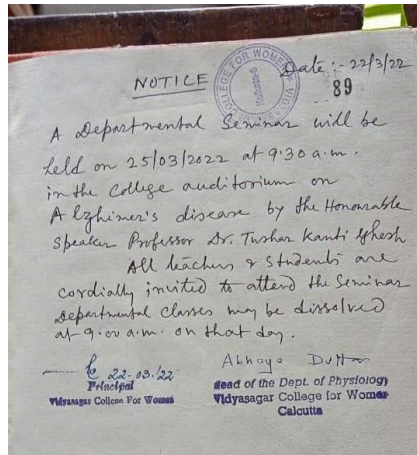 NOTICE
Date :- 22/3/22
COLLEGE FOR WOMEN
89
A Departmental Seminar will be
held on 25/03/2022 at 9.30 a.m.
in the College auditorium on
Alzhimer's disease by the Honourable
Speaker Professor Dr. Tushar Kanti Ghosh
All teachers & students are
cordially invited to attend the Seminar
Departmental classes may be dissolved
at 9.00 a.m. on that day.
22-03-'22
Principal
Vidyasagar College For Women
Abhaya Dutta
Head of the Dept. of Physiology
Vidyasagar College for Women
Calcutta